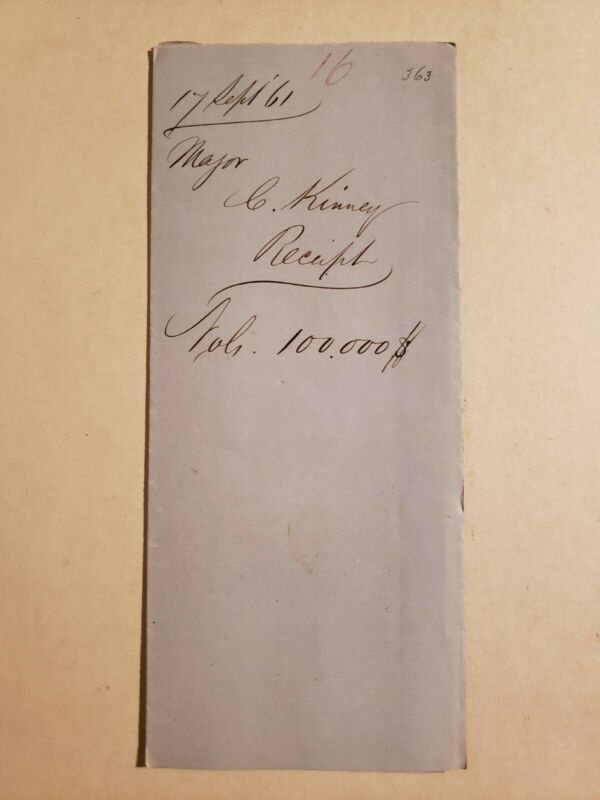 16
363
17 Sept '61
Major
C. Kinney
Receipt
Vols. 100.000 $